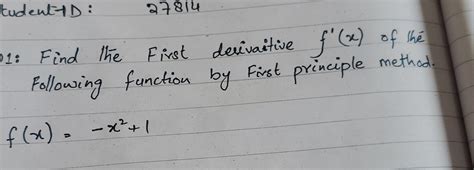 tudent ID: 27814
01: Find the First derivaitive f'(x) of the
Following function by First principle method.
f(x) = -x²+1